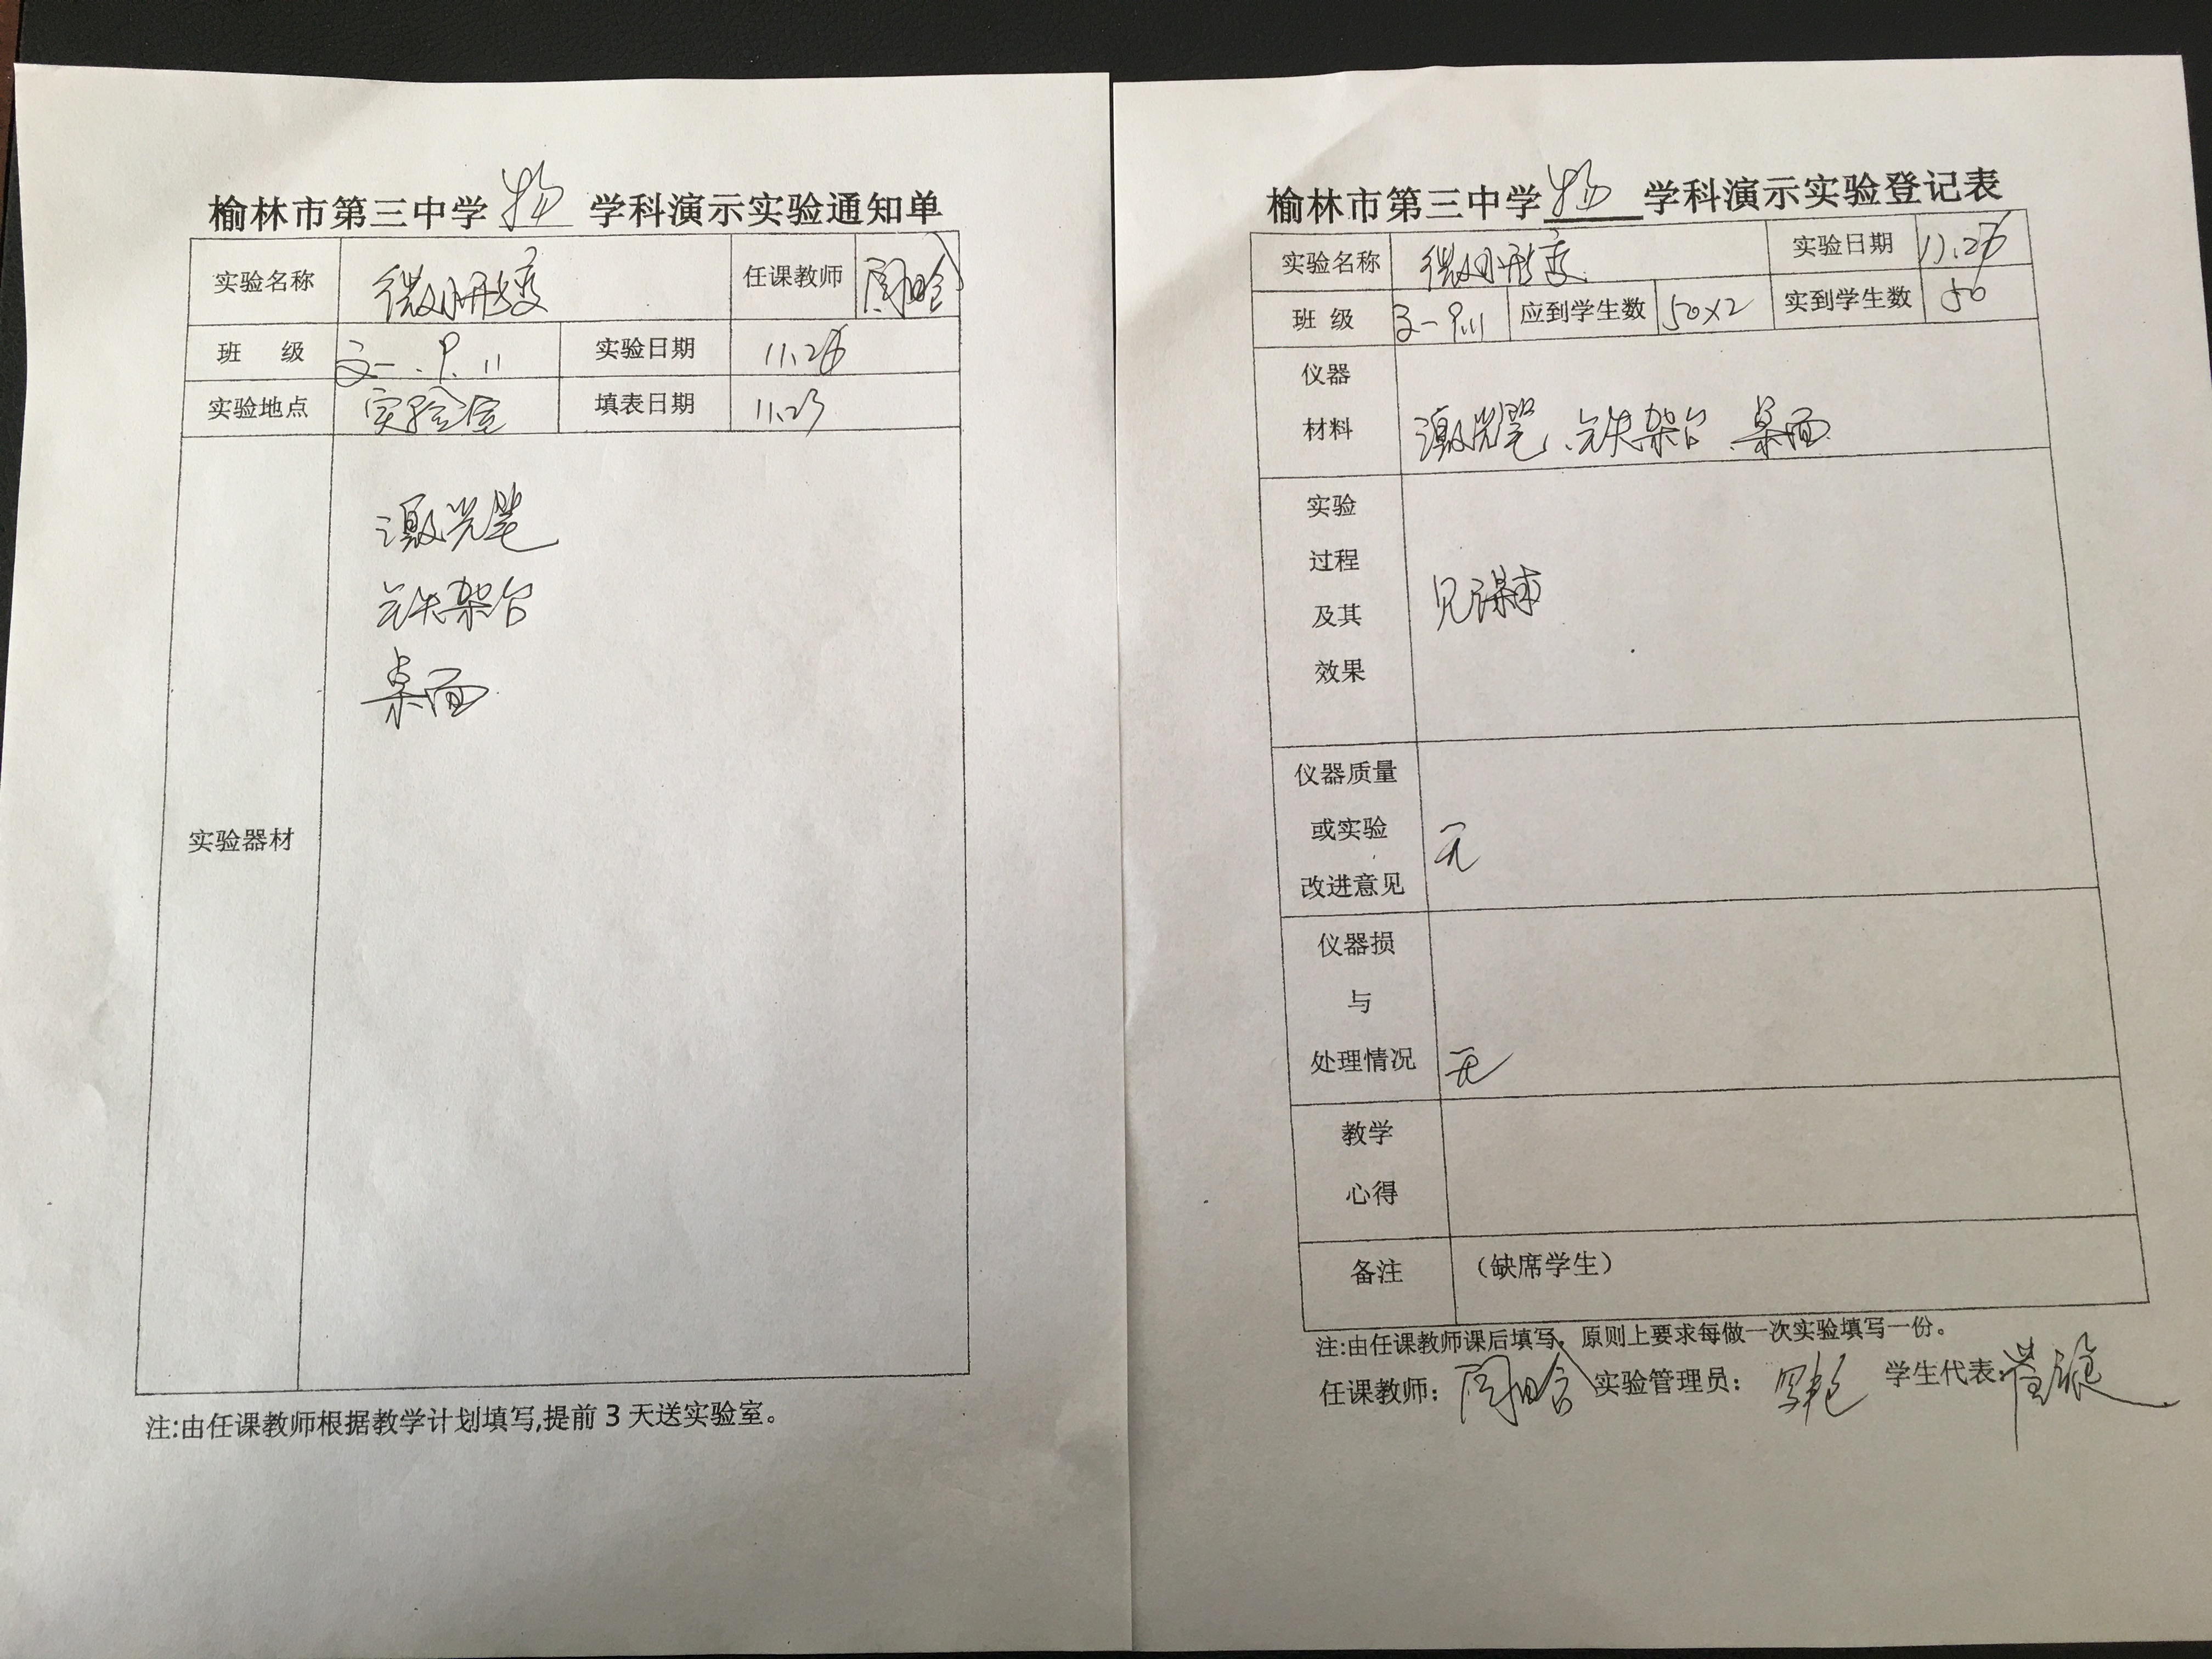 榆林市第三中学 物 学科演示实验通知单
实验名称 微小形变 任课教师 周晗
班 级 高一.9.11 实验日期 11.26
实验地点 实验室 填表日期 11.23
实验器材
激光笔
铁架台
桌面
注:由任课教师根据教学计划填写,提前3天送实验室。
榆林市第三中学 物 学科演示实验登记表
实验名称 微小形变 实验日期 11.26
班 级 高一9.11 应到学生数 50×2 实到学生数 50
仪器
材料 激光笔、铁架台、桌面
实验
过程
及其 见课本
效果
仪器质量
或实验 无
改进意见
仪器损
与
处理情况 无
教学
心得
备注 （缺席学生）
注:由任课教师课后填写，原则上要求每做一次实验填写一份。
任课教师: 周晗 实验管理员: 学生代表: